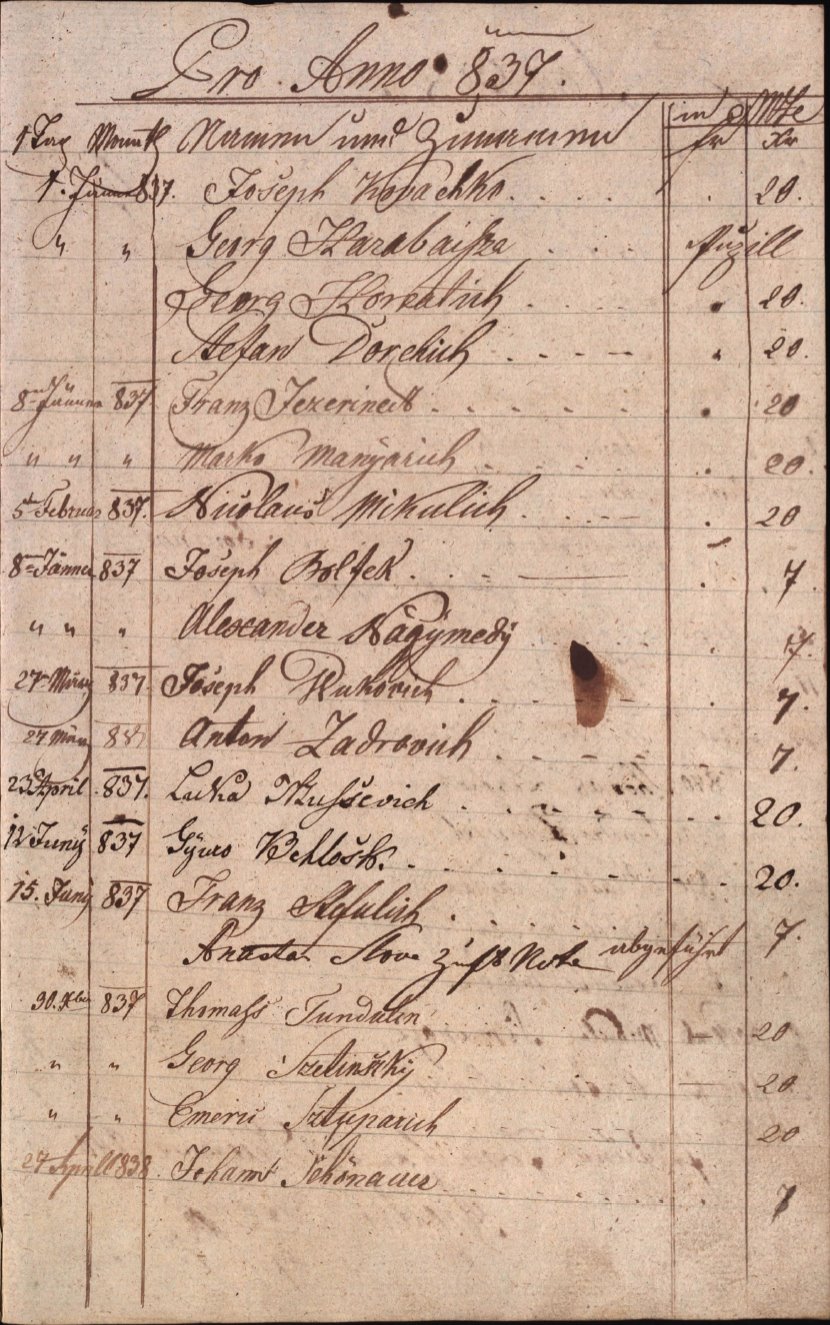 Pro. Anno 837.
Tag Monath Namen und Zunamen in Mze
fr xr
1. Jänner 837. Joseph Kovachko. . . . . 20.
" " Georg Harabaissa . . .
Georg Horvatich . . . . 20.
Stefan Dorchich . . . . . 20.
8 Jänner 837 Franz Jezerinecz . . . . . 20
" " " Marko Manÿarich . . . . 20.
5t Februar 837. Nicolaus Mikulich . . . . 20
8 Jänner 837 Joseph Bolfek . . . . 7.
" " " Alexander Nagÿmedÿ . . 7.
27 März 837. Joseph Vukovich . . . 7.
27 März Anton Zadravich . . . 7.
23 April 837. Luka . . . 20.
12 Junÿ 837 Gÿuro . . . 20.
15. Junÿ 837 Franz Stefulich . . . 7.
Slova Note abgeführt
30. 837 Thomass Tundalen 20
" " Georg 20
" " Emeric 20
27 April 838 Johann Schönauer . . . 7